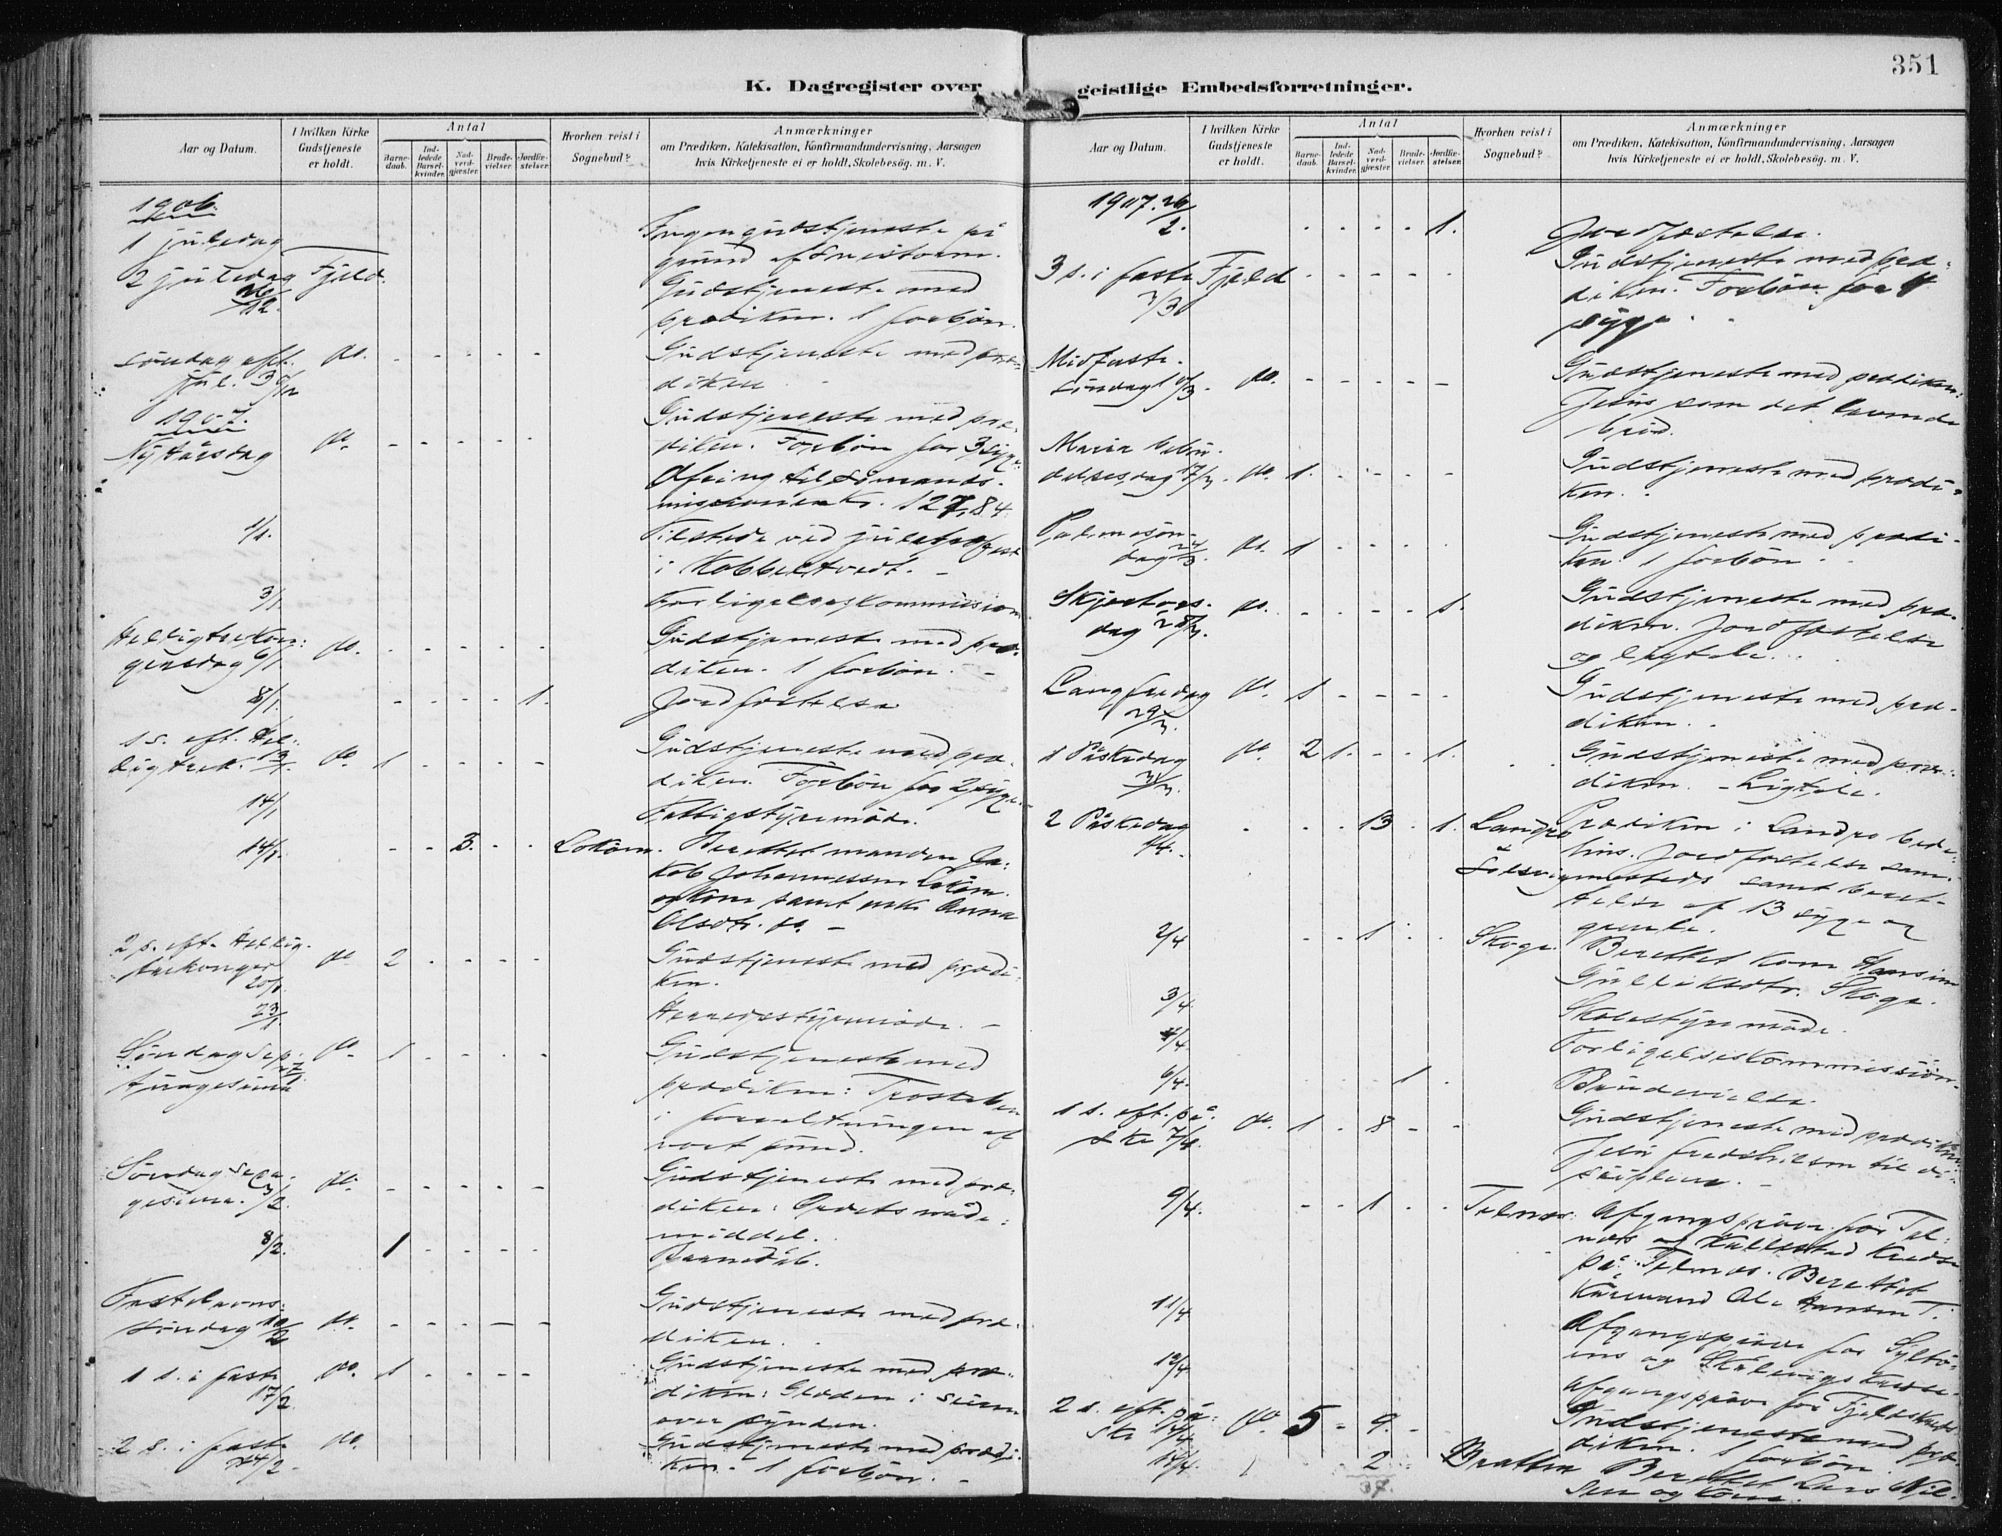 351
K. Dagregister over geistlige Embedsforretninger.
Aar og Datum.
I hvilken Kirke Gudstjeneste er holdt.
Antal
Barnedaab.
Indledede Barselkvinder.
Nadverdgjæster.
Brudevielser.
Jordfæstelser.
Hvorhen reist i Sognebud?
Anmærkninger
om Prædiken, Katekisation, Konfirmandundervisning, Aarsagen
hvis Kirketjeneste ei er holdt, Skolebesøg. m. V.
1906.
1 juledag Ingen gudstjeneste på
grund af
2 juledag Fjeld. Gudstjeneste med
26/12. prædiken. 1 forbøn.
Søndag eft. do. - - - - - Gudstjeneste med præ-
jul. 30/12 diken
1907.
Nytårsdag do. - - - - - Gudstjeneste med præ-
diken. Forbøn for 3 syge.
Ofring til Sømands-
missionen Kr. 127,84.
1/1. Tilstede ved juletræfest
i Kobbeltvedt. -
3/1. Forligelseskommission
Helligtrekon-
gersdag 6/1. do. - - - - - Gudstjeneste med præ-
diken. 1 forbøn. -
8/1. - - - - 1. Jordfæstelse
1 s. eft. Hel-
ligtrek. 13/1. do. 1 - - - - Gudstjeneste med præ-
diken. Forbøn for 2 syge.
14/1 Fattigstyremøde.
14/1. - - 3. - - Lokøen. Berettet manden Ja-
kob Johannessen Lokøen
og kone samt enke Anna
Olsdtr. do. -
2 s. eft. Hellig-
trekonger do. 2 - - - - Gudstjeneste med prædi-
20/1 ken.
23/1. Herredsstyremøde. -
Søndag Sep- do. 1 - - - - Gudstjeneste med
tuagesima 27/1 prædiken: Trosteben
i forvaltningen af
vort pund.
Søndag Sexa-
gesima. 3/2. do. - - - - - Gudstjeneste med præ-
diken: Ordets nåde-
middel.
8/2. 1 - - - - Barnedåb.
Fastelavns-
søndag 10/2 do. - - - - - Gudstjeneste med præ-
diken.
1 s. i faste do. 1 - - - - Gudstjeneste med præ-
17/2. diken: Glæden i seiren
over synden.
2 s. i faste do. Gudstjeneste med prædi-
24/2. ken. 1 forbøn. -
Aar og Datum.
I hvilken Kirke Gudstjeneste er holdt.
Antal
Barnedaab.
Indledede Barselkvinder.
Nadverdgjæster.
Brudevielser.
Jordfæstelser.
Hvorhen reist i Sognebud?
Anmærkninger
om Prædiken, Katekisation, Konfirmandundervisning, Aarsagen
hvis Kirketjeneste ei er holdt, Skolebesøg. m. V.
1907. 26/2. - - - - 1. Jordfæstelse.
3 s. i faste Fjeld - - - - - Gudstjeneste med præ-
3/3 diken. Forbøn for 4
syge.
Midfaste-
søndag 10/3. do. - - - - - Gudstjeneste med prædiken:
Jesus som det levende
brød.
Maria bebu-
delsesdag 17/3. do. 1. - - - - Gudstjeneste med prædi-
ken.
Palmesøn-
dag 24/3. do. 1 - - - - Gudstjeneste med prædi-
ken. 1 forbøn.
Skjærtors-
dag 28/3. do. - - - - 1. Gudstjeneste med præ-
diken. Jordfæstelse
og ligtale.
Langfredag do. 1 - - - - Gudstjeneste med præ-
29/3. diken.
1 Påskedag do. 2 1. - - 1. Gudstjeneste med præ-
31/3. diken. - Ligtale.
2 Påskedag - - 13 - 1. Landro Prædiken i Landro bede-
1/4. hus. Jordfæstelse sam-
mesteds samt beret-
telse af 13 syge og
gamle.
2/4 - - 1 - - Skoge. Berettet kone Hansine
Gulliksdtr. Skoge.
3/4. Skolestyremøde.
4/4. Forligelseskommission.
6/4. 1 - Brudevielse.
1 s. eft. på-
ske 7/4. do. 1 - 8 - - Gudstjeneste med prædiken:
Jesu fredshilsen til di-
siplene. -
9/4. - - 1 - - Telnes. Afgangsprøve for Tel-
nes og Kallestad kreds
på Telnes. Berettet
Kårmand Ole Hansen T.
11/4 Afgangsprøve for Syltø-
ens og Skålevigs kreds.
12/4 Afgangsprøve for Fjeldskreds
2 s. eft. på-
ske 14/4 do. 5 - 9. - Gudstjeneste med præ-
diken. 1 forbøn.
2 Bratten Berettet Lars Nil-
sen og kone.
37.